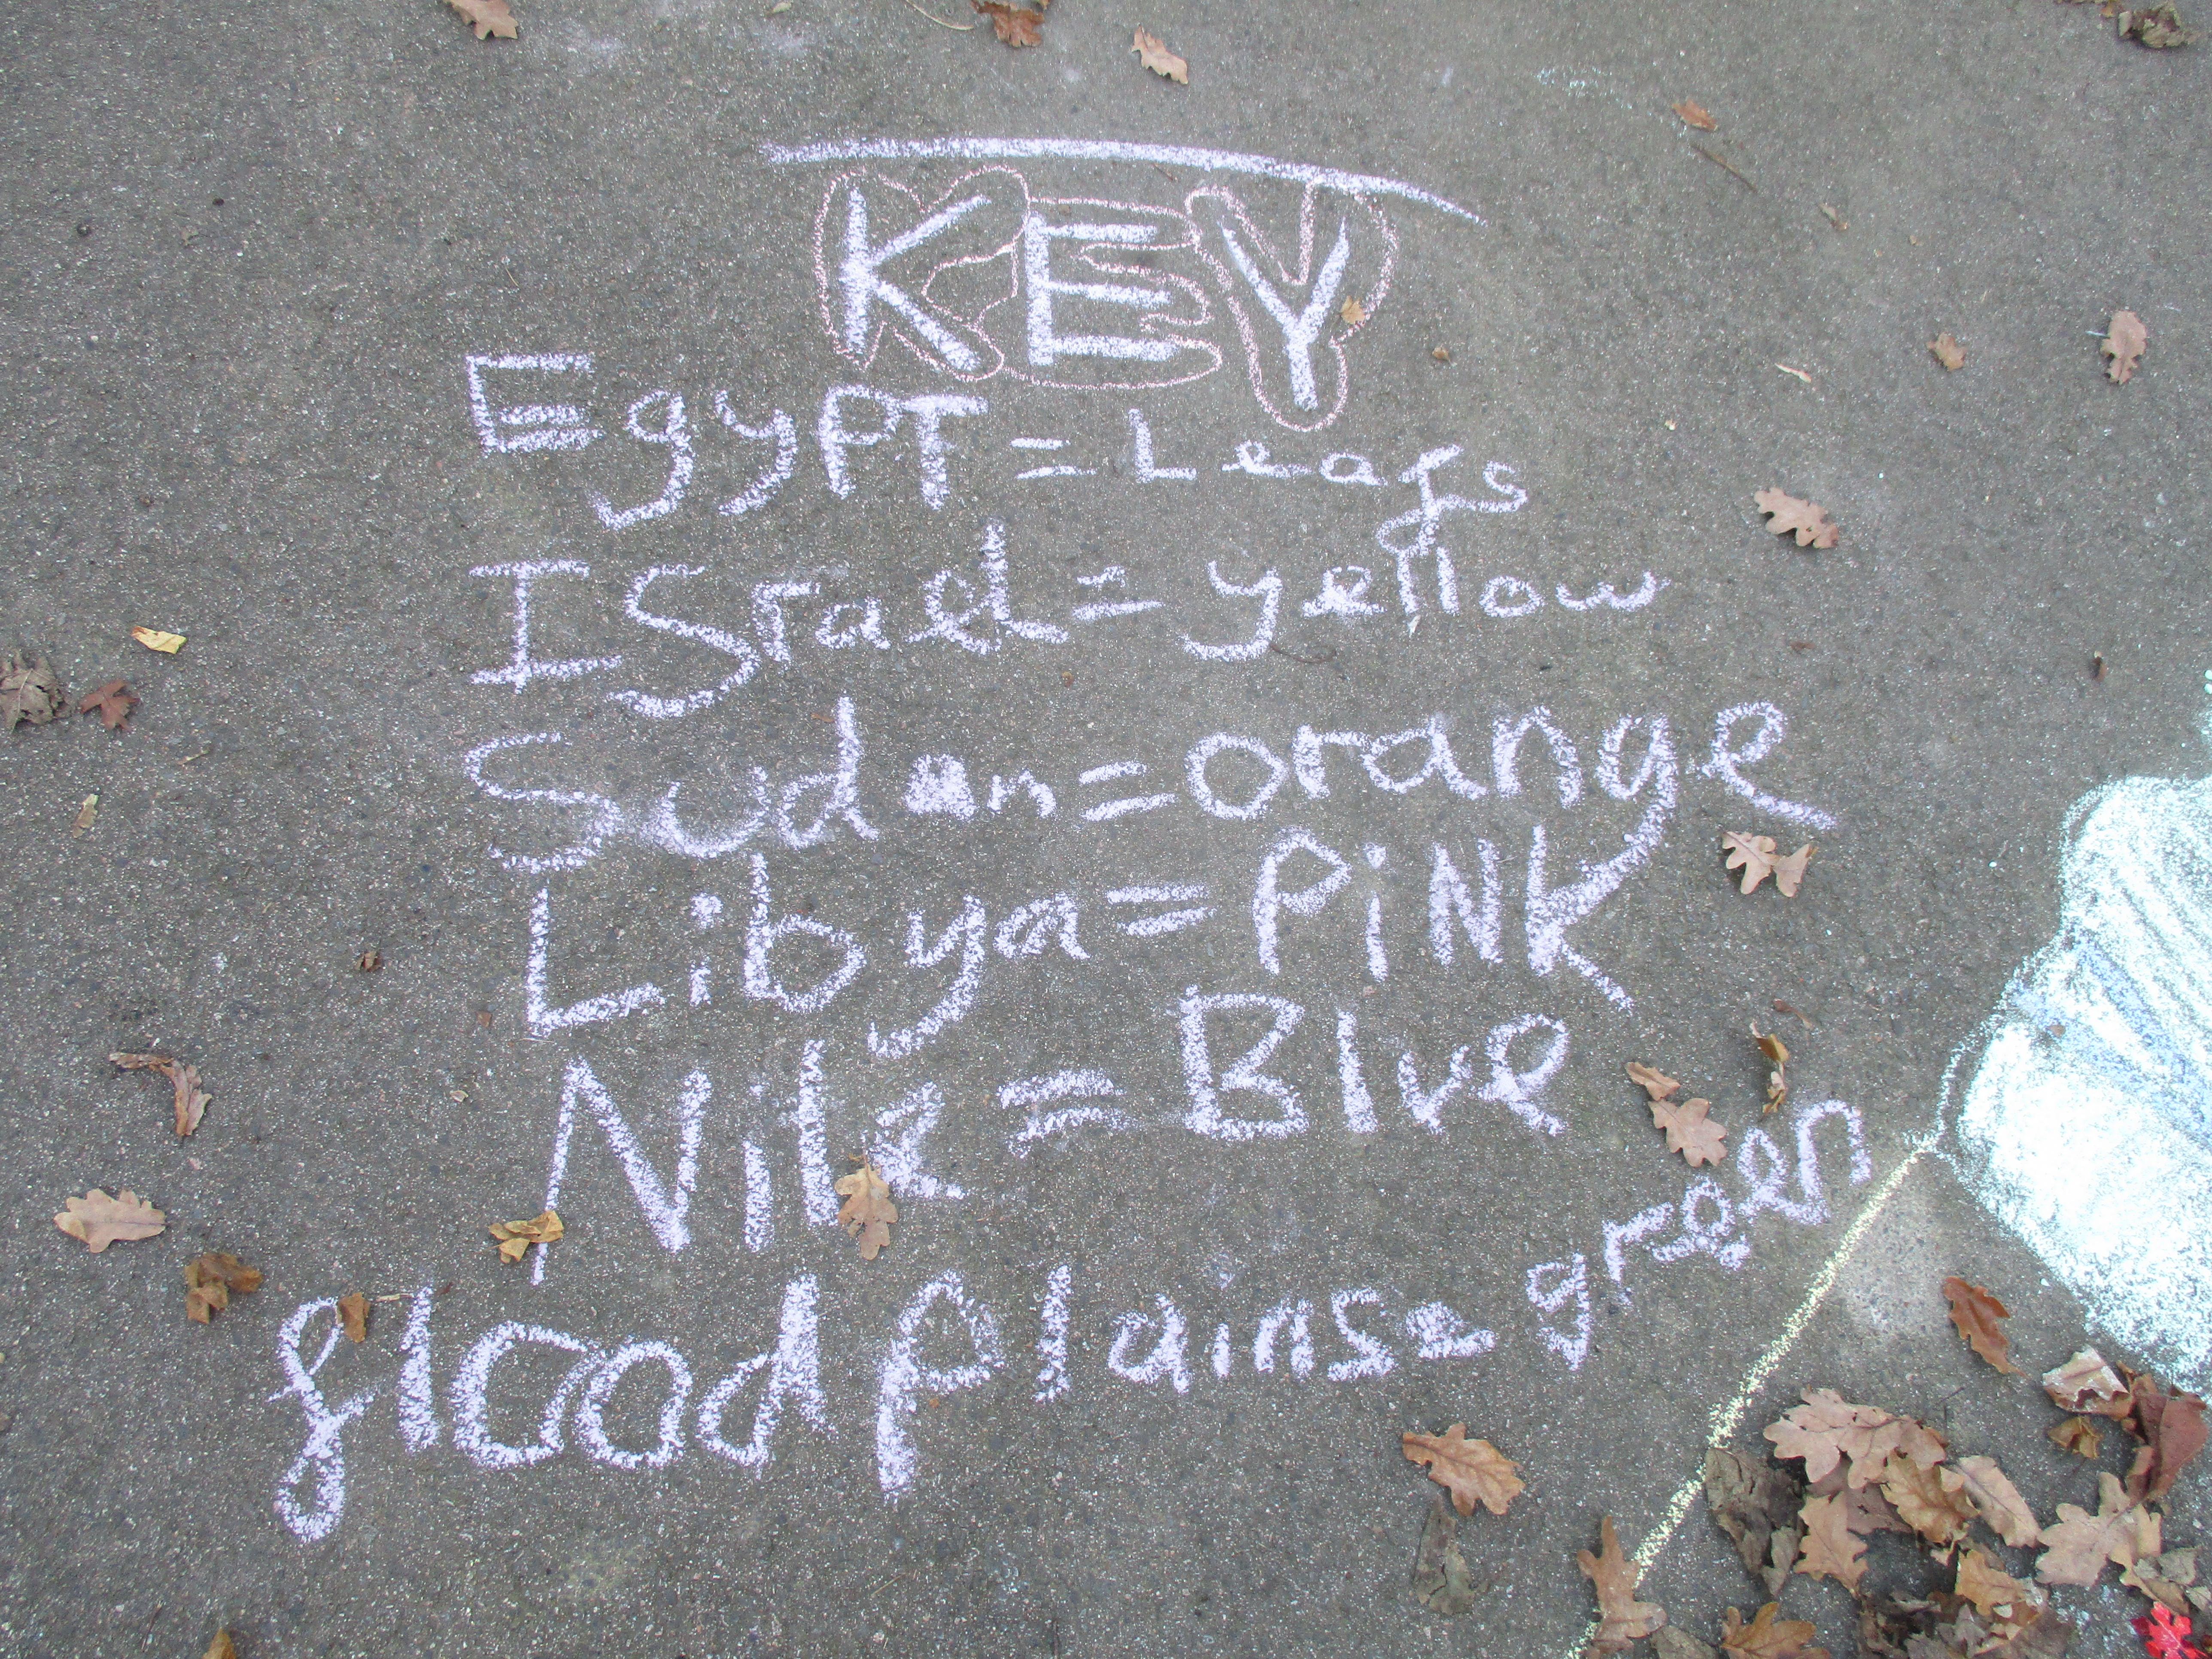 KEY
EgyPT = Leafs
ISrael = yellow
Sudan = orange
Libya = PiNK
Nile = Blue
floodplains = green